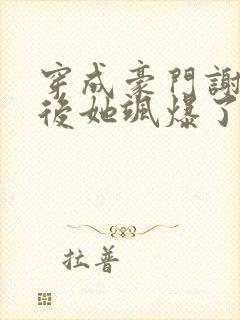 穿成豪門謝
後她颯爆了
拉普